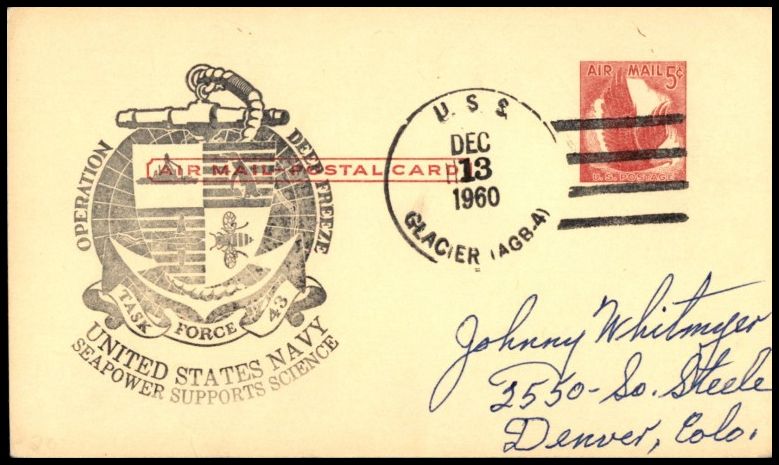 OPERATION DEEP FREEZE
TASK FORCE 43
UNITED STATES NAVY
SEAPOWER SUPPORTS SCIENCE
AIR MAIL POSTAL CARD
U. S. S.
DEC
13
1960
GLACIER (AGB-4)
AIR MAIL 5¢
U. S. POSTAGE
Johnny Whitmyer
2550-So. Steele
Denver, Colo.